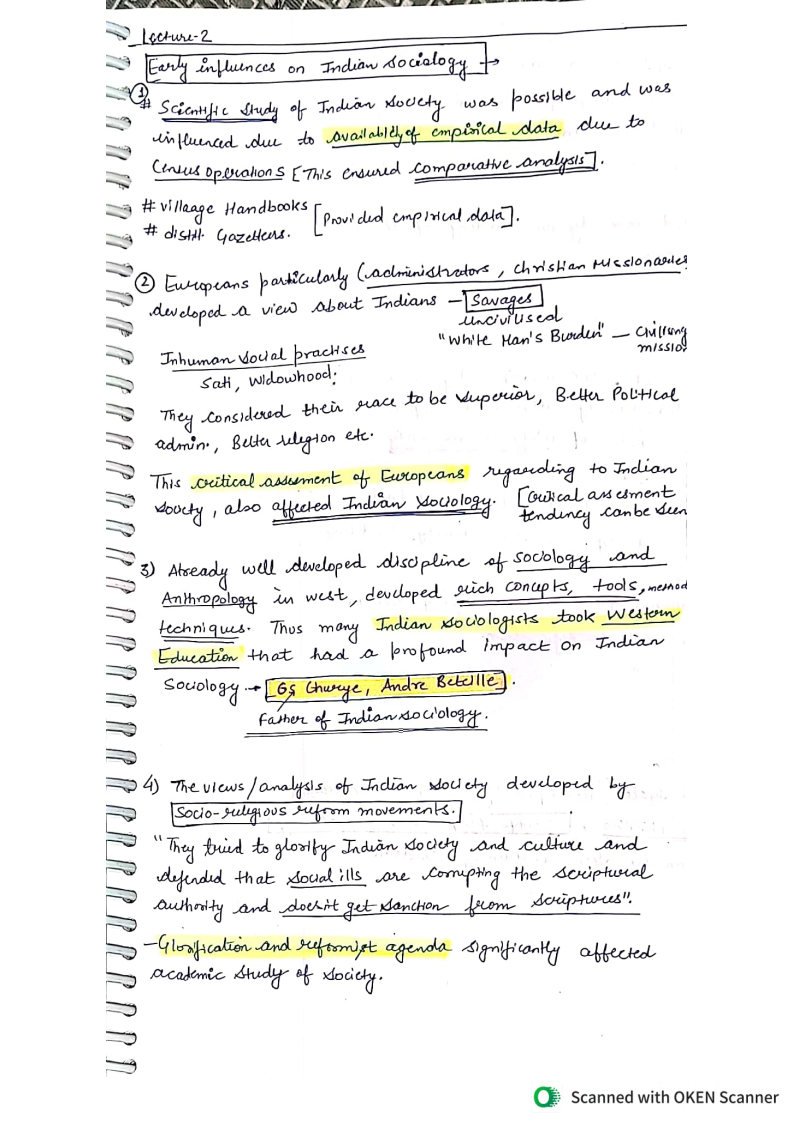 Lecture-2
Early influences on Indian Sociology →
①
# Scientific study of Indian society was possible and was
influenced due to availability of empirical data due to
Census operations [This ensured comparative analysis].
# Villaage Handbooks [Provided empirical data].
# distt. Gazetters.
② Europeans particularly (administrators, Christian Missionaries
developed a view about Indians - Savages
uncivilised
"White Man's Burden" - Civilising
missio
Inhuman social practises
Sati, Widowhood.
They considered their race to be superior, Better Political
admin., Better religion etc.
This critical assesment of Europeans regarding to Indian
society, also affected Indian sociology. [Critical assesment
tendency can be seen
3) Already well developed discipline of sociology and
Anthropology in west, developed rich concepts, tools, method
techniques. Thus many Indian sociologists took Western
Education that had a profound impact on Indian
Sociology → [GS Ghurye, Andre Beteille].
Father of Indian sociology.
4) The views/analysis of Indian society developed by
Socio-religious reform movements.
"They tried to glorify Indian society and culture and
defended that social ills are corrupting the scriptural
authority and doesn't get sanction from scriptures".
- Glorification and reformist agenda significantly affected
academic study of society.
Scanned with OKEN Scanner